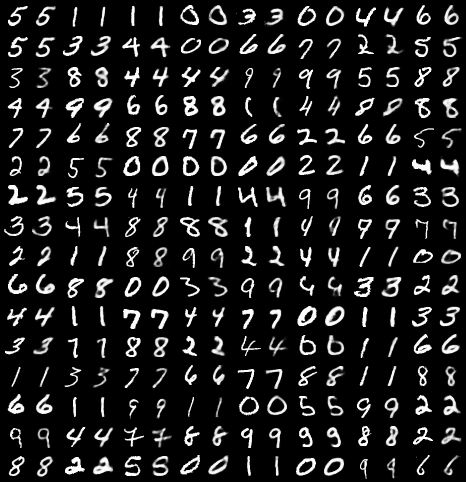 5 5 1 1 1 1 0 0 3 3 0 0 4 4 6 6
5 5 3 3 4 4 0 0 6 6 7 7 2 2 5 5
3 3 8 8 4 4 4 4 9 9 9 9 5 5 8 8
4 4 9 9 6 6 8 8 1 1 4 4 8 8 8 8
7 7 6 6 8 8 7 7 6 6 2 2 6 6 5 5
2 2 5 5 0 0 0 0 0 0 2 2 1 1 4 4
2 2 5 5 4 4 1 1 4 4 9 9 6 6 3 3
3 3 4 4 8 8 8 8 1 1 9 9 9 9 7 7
2 2 1 1 8 8 9 9 2 2 4 4 1 1 0 0
6 6 8 8 0 0 3 3 9 9 4 4 3 3 2 2
4 4 1 1 7 7 4 4 7 7 0 0 1 1 3 3
3 3 7 7 8 8 2 2 4 4 0 0 1 1 6 6
1 1 3 3 7 7 6 6 7 7 8 8 1 1 8 8
6 6 1 1 9 9 1 1 0 0 5 5 9 9 2 2
9 9 4 4 7 7 8 8 9 9 9 9 8 8 2 2
8 8 2 2 5 5 0 0 1 1 0 0 9 9 6 6